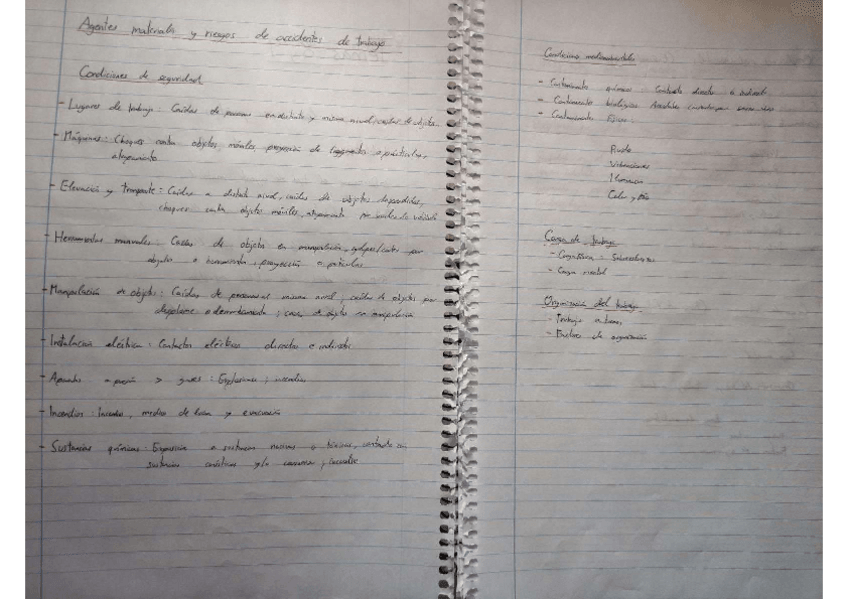 Agentes materiales y riesgos de accidentes de trabajo
Condiciones de seguridad
- Lugares de trabajo: Caídas de personas a distinto y mismo nivel, caídas de objetos.
- Máquinas: Choques contra objetos móviles, proyección de fragmentos o partículas,
atrapamiento
- Elevación y transporte: Caídas a distinto nivel, caídas de objetos desprendidos,
choques contra objetos móviles, atrapamiento
- Herramientas manuales: Caídas de objetos en manipulación, golpes/cortes por
objetos o herramientas, proyección o partículas
- Manipulación de objetos: Caídas de personas al mismo nivel; caídas de objetos por
desplome o derrumbamiento; caída de objetos en manipulación
- Instalación eléctrica: Contactos eléctricos directos o indirectos
- Aparatos a presión y gases: Explosiones; incendios
- Incendios: Incendios, medios de lucha y evacuación
- Sustancias químicas: Exposición a sustancias nocivas o tóxicas, contacto con
sustancias cáusticas y/o corrosivas; incendios
Condiciones medioambientales
- Contaminante químicos: Contacto directo o indirecto
- Contaminante biológicos: por seres vivos
- Contaminante físicos:
Ruido
Vibraciones
Iluminación
Calor y frío
Carga de trabajo
- Carga física: Sobreesfuerzos
- Carga mental
Organización del trabajo
- Trabajo a turnos
- Factores de organización